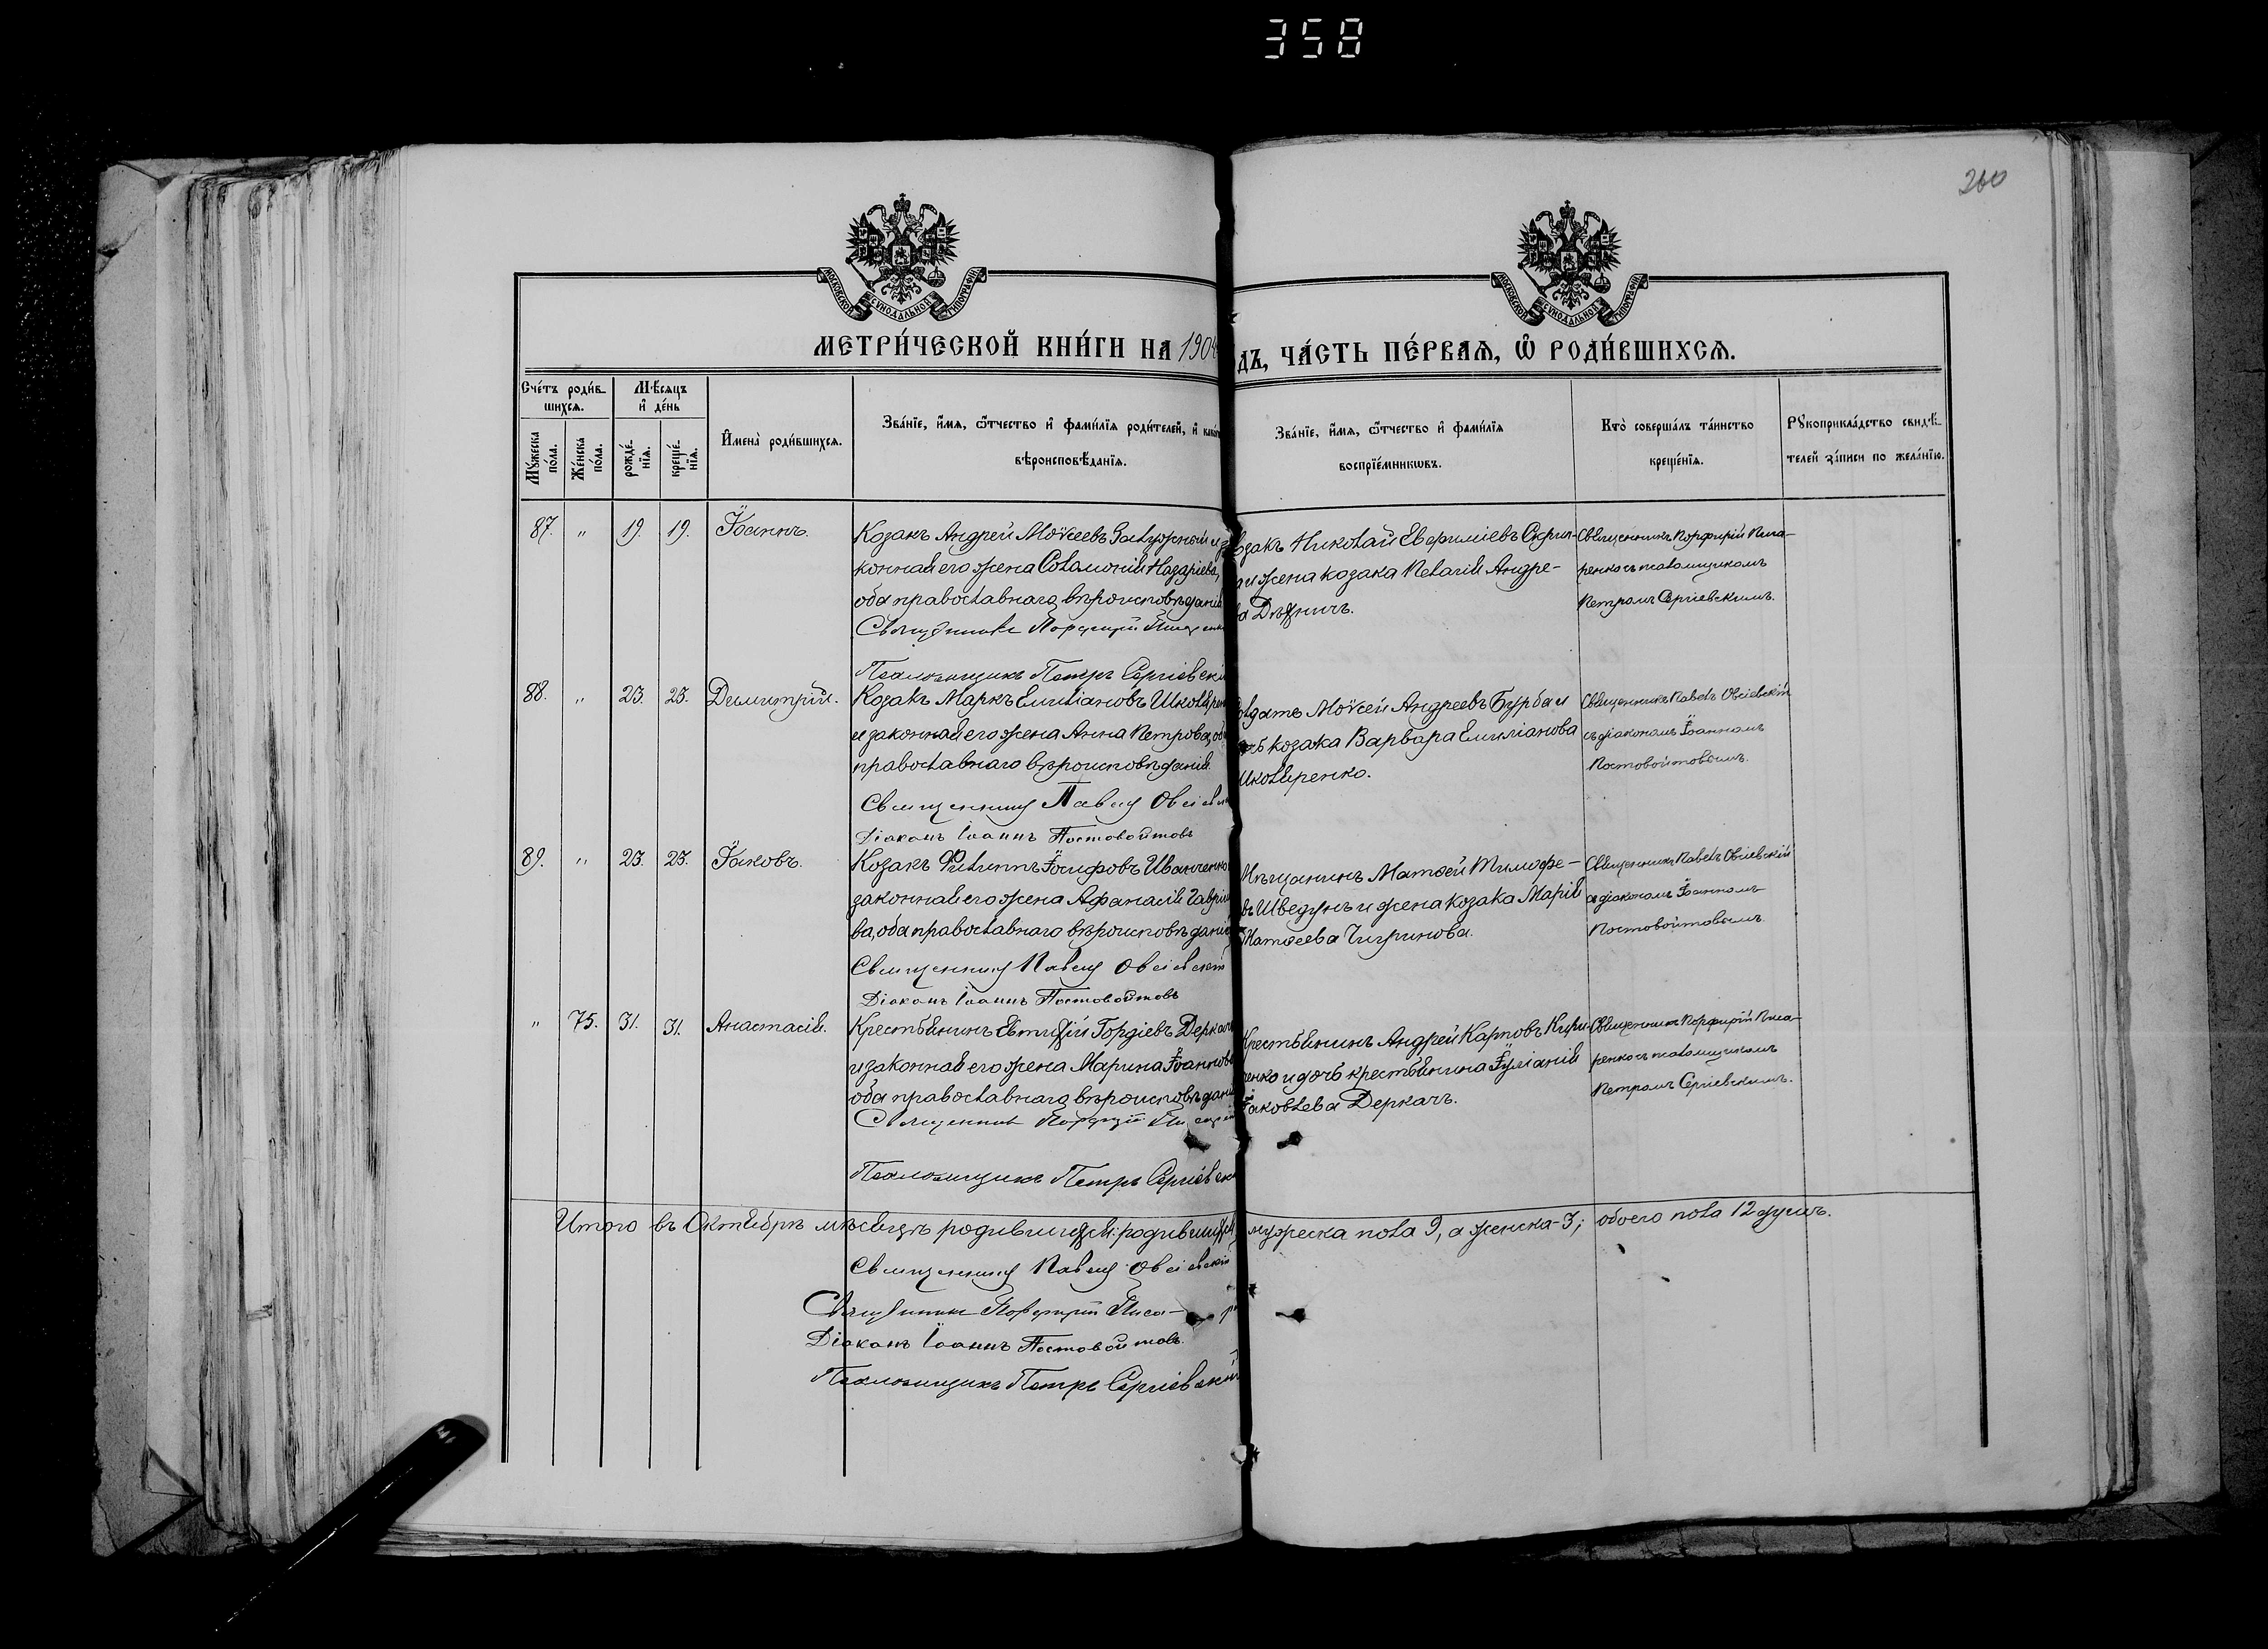 358
260
МОСКОВСКОЙ СѴНОДАЛЬНОЙ ТИПОГРАФІИ
МОСКОВСКОЙ СѴНОДАЛЬНОЙ ТИПОГРАФІИ
МЕТРИ́ЧЕСКОЙ КНИ́ГИ НА 190
ДЪ, ЧА́СТЬ ПЕ́РВАѦ, Ѽ РОДИ́ВШИХСѦ.
Сче́тъ роди́в-
шихсѧ.
Мѣ́сѧцъ
и҆ де́нь
Мꙋ́жеска по́ла.
Же́нска по́ла.
рожде́нїѧ.
креще́нїѧ.
И҆мена̀ роди́вшихсѧ.
Зва́нїе, и҆́мѧ, ѻ҆́тчество и҆ фами́лїѧ роди́телей, и҆
вѣроисповѣ́данїѧ.
Зва́нїе, и҆́мѧ, ѻ҆́тчество и҆ фами́лїѧ
воспрїе́мникѡвъ.
Кто̀ соверша́лъ та́инство
креще́нїѧ.
Рꙋкоприкла́дство свидѣ́-
телей за́писи по жела́нїю.
87. " 19. 19. Іоаннъ.
Козакъ Андрей Моѵсеевъ Залужный и за
конная его жена Соломонія Назаріева,
оба православнаго вѣроисповѣданія
Священникъ Порфирій Писаренко
Псаломщикъ Петръ Сергіевскі
озакъ Николай Евфиміевъ
и жена козака Пелагія Андре-
ва
Священникъ Порфирій Писа-
ренко съ псаломщикомъ
Петромъ Сергіевскимъ.
88. " 23. 23. Димитрій.
Козакъ Маркъ Емиліановъ Шкляренко
и законная его жена Анна Петрова, оба
православнаго вѣроисповѣданія.
Священникъ Павелъ Овсіевскі
Діаконъ Іоаннъ Постовойтовъ
олдатъ Моѵсей Андреевъ Бурба и
чь козака Варвара Емиліанова
Шкляренко.
Священникъ Павелъ Овсіевскій
съ діакономъ Іоанномъ
Постовойтовымъ.
89. " 23. 23. Іаковъ.
Козакъ Филиппъ Іосифовъ Иванченко
законная его жена Афанасія Гавріи
ва, оба православнаго вѣроисповѣданія
Священникъ Павелъ Овсіевскій
Діаконъ Іоаннъ Постовойтовъ
Мѣщанинъ Матѳей Тимофе-
въ Шведунъ и жена козака Марія
Матѳеева Чигринова.
Священникъ Павелъ Овсіевскій
съ діакономъ Іоанномъ
Постовойтовымъ.
" 75. 31. 31. Анастасія.
Крестьянинъ Евтихій Гордіевъ Деркачъ
и законная его жена Марина Іоаннова
оба православнаго вѣроисповѣданія
Священникъ Порфирій Писаре
Псаломщикъ Петръ Сергіевски
Крестьянинъ Андрей Карповъ Кири-
ченко и дочь крестьянина Іуліанія
Іаковлева Деркачъ.
Священникъ Порфирій Писа-
ренко съ псаломщикомъ
Петромъ Сергіевскимъ.
Итого въ Октябрѣ мѣсяцѣ родившихся: родившихся мужеска пола 9, а женска-3; обоего пола 12 душъ.
Священникъ Павелъ Овсіевскій
Священникъ Порфирій Писа-
Діаконъ Іоаннъ Постовойтовъ.
Псаломщикъ Петръ Сергіевскій